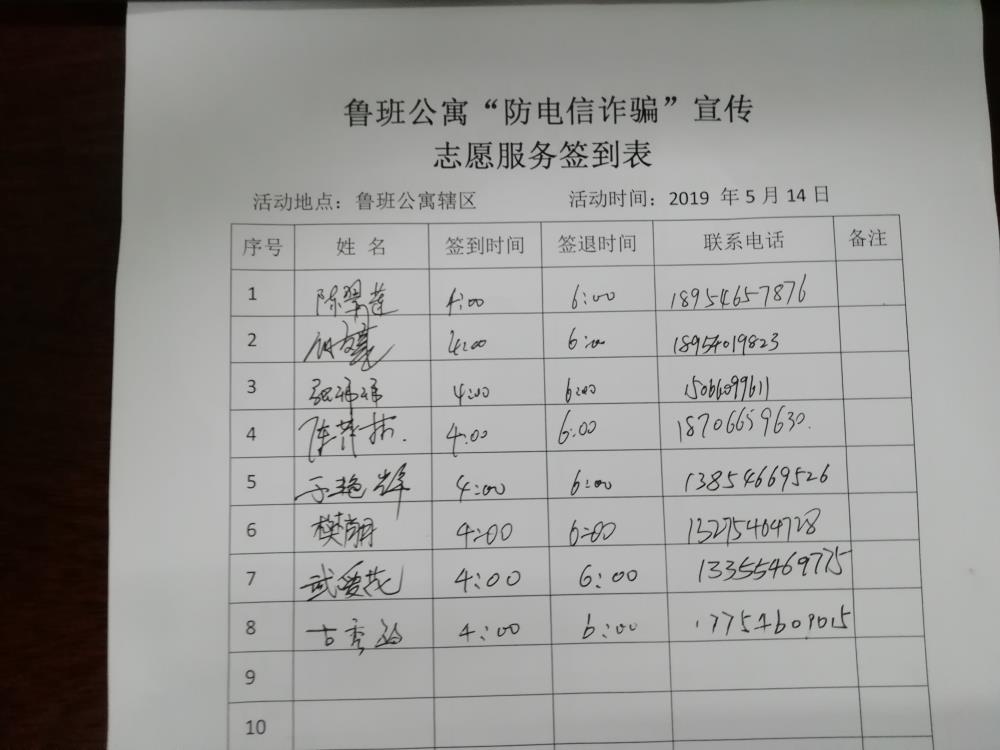 鲁班公寓“防电信诈骗”宣传
志愿服务签到表
活动地点：鲁班公寓辖区 活动时间：2019 年 5 月 14 日
序号 姓 名 签到时间 签退时间 联系电话 备注
1 陈翠莲 4:00 6:00 18954657876
2 4:00 6:00 18954019823
3 张祎祎 4:00 6:00 15066099611
4 陈萍 4:00 6:00 18706659630.
5 于艳辉 4:00 6:00 13854669526
6 樊朝 4:00 6:00 13275464728
7 武爱花 4:00 6:00 13355469775
8 古秀 4:00 6:00 17754609015
9
10